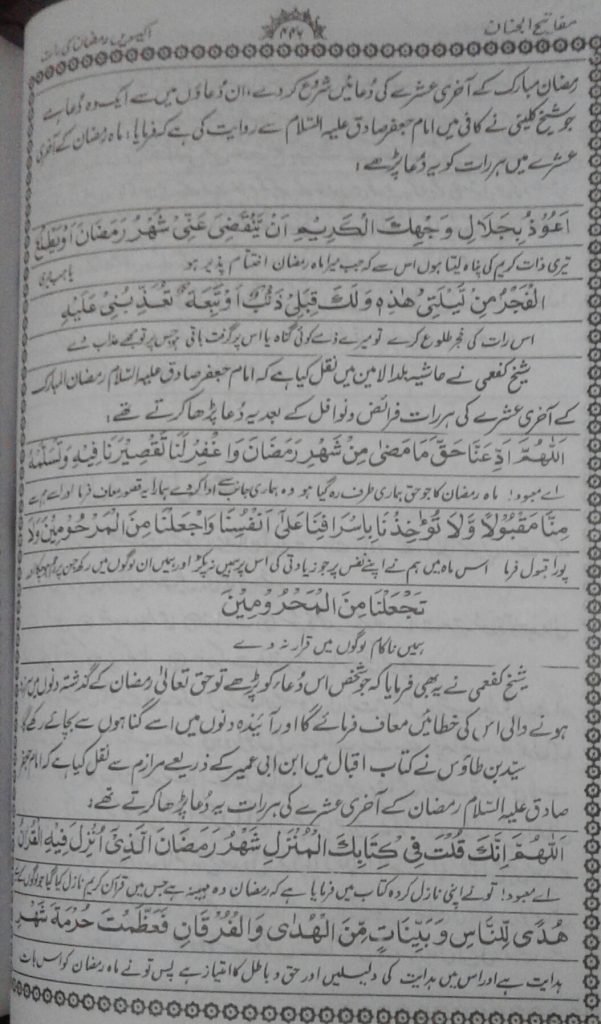 مفاتیح الجنان
۴۴۶
اکیسویں رمضان کی رات
رمضان مبارک کے آخری عشرے کی دُعائیں شروع کر دے، ان دُعاؤں میں سے ایک وہ دُعا ہے
جو شیخ کلینی نے کافی میں امام جعفر صادق علیہ السّلام سے روایت کی ہے کہ فرمایا، ماہ رمضان کے آخری
عشرے میں ہر رات کو یہ دُعا پڑھے:
اَعُوْذُ بِجَلَالِ وَجْهِكَ الْكَرِيْمِ اَنْ يَّنْقَضِيَ عَنِّيْ شَهْرُ رَمَضَانَ اَوْ يَطْلُعَ
تیری ذات کریم کی پناہ لیتا ہوں اس سے کہ جب میرا ماہ رمضان اختتام پذیر ہو یا جب میری
الْفَجْرُ مِنْ لَيْلَتِيْ هٰذِهٖ وَلَكَ قِبَلِيْ ذَنْبٌ اَوْ تَبِعَةٌ تُعَذِّبُنِيْ عَلَيْهِ
اس رات کی فجر طلوع کرے تو میرے ذمے کوئی گناہ یا اس پر گرفت باقی ہو جس پر تو مجھے عذاب دے
شیخ کفعمی نے حاشیہ بلد الامین میں نقل کیا ہے کہ امام جعفر صادق علیہ السّلام رمضان المبارک
کے آخری عشرے کی ہر رات فرائض و نوافل کے بعد یہ دُعا پڑھا کرتے تھے:
اَللّٰهُمَّ اَدِّ عَنَّا حَقَّ مَا مَضٰى مِنْ شَهْرِ رَمَضَانَ وَاغْفِرْ لَنَا تَقْصِيْرَنَا فِيْهِ وَتَسَلَّمْهُ
اے معبود! ماہ رمضان کا جو حق ہماری طرف رہ گیا ہو وہ ہماری جانب سے ادا کر دے ہمارا یہ قصور معاف فرما اور اسے ہم سے
مِنَّا مَقْبُوْلًا وَّلَا تُؤَاخِذْنَا بِاِسْرَافِنَا عَلٰى اَنْفُسِنَا وَاجْعَلْنَا مِنَ الْمَرْحُوْمِيْنَ وَلَا
پورا قبول فرما اس ماہ میں ہم نے اپنے نفس پر جو زیادتی کی اس پر ہمیں نہ پکڑ اور ہمیں ان لوگوں میں رکھ جن پر رحم
تَجْعَلْنَا مِنَ الْمَحْرُوْمِيْنَ
ہمیں ناکام لوگوں میں قرار نہ دے
شیخ کفعمی نے یہ بھی فرمایا کہ جو شخص اس دُعا کو پڑھے تو حق تعالیٰ رمضان کے گذشتہ دنوں میں سرزد
ہونے والی اس کی خطائیں معاف فرمائے گا اور آئیندہ دنوں میں اسے گناہوں سے بچائے رکھے گا
سیّد بن طاؤس نے کتاب اقبال میں ابن ابی عمیر کے ذریعے مرازم سے نقل کیا ہے کہ امام جعفر
صادق علیہ السّلام رمضان کے آخری عشرے کی ہر رات یہ دُعا پڑھا کرتے تھے:
اَللّٰهُمَّ اِنَّكَ قُلْتَ فِيْ كِتَابِكَ الْمُنْزَلِ شَهْرُ رَمَضَانَ الَّذِيْ اُنْزِلَ فِيْهِ الْقُرْاٰنُ
اے معبود! تو نے اپنی نازل کردہ کتاب میں فرمایا ہے کہ رمضان وہ مہینہ ہے جس میں قرآن کریم نازل کیا گیا جو لوگوں کیلئے
هُدًى لِّلنَّاسِ وَبَيِّنَاتٍ مِّنَ الْهُدٰى وَالْفُرْقَانِ فَعَظَّمْتَ حُرْمَةَ شَهْرِ
ہدایت ہے اور اس میں ہدایت کی دلیلیں اور حق و باطل کا امتیاز ہے پس تو نے ماہ رمضان کو اس بات